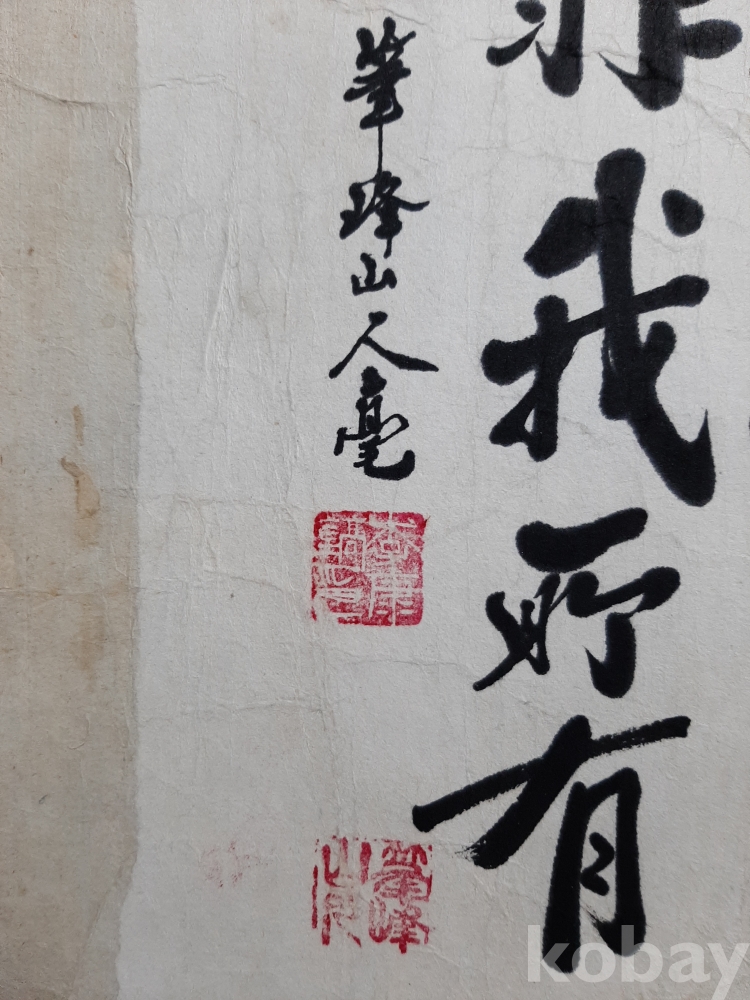 非我所有
筆峰山人毫
筆峰
山人
kobay